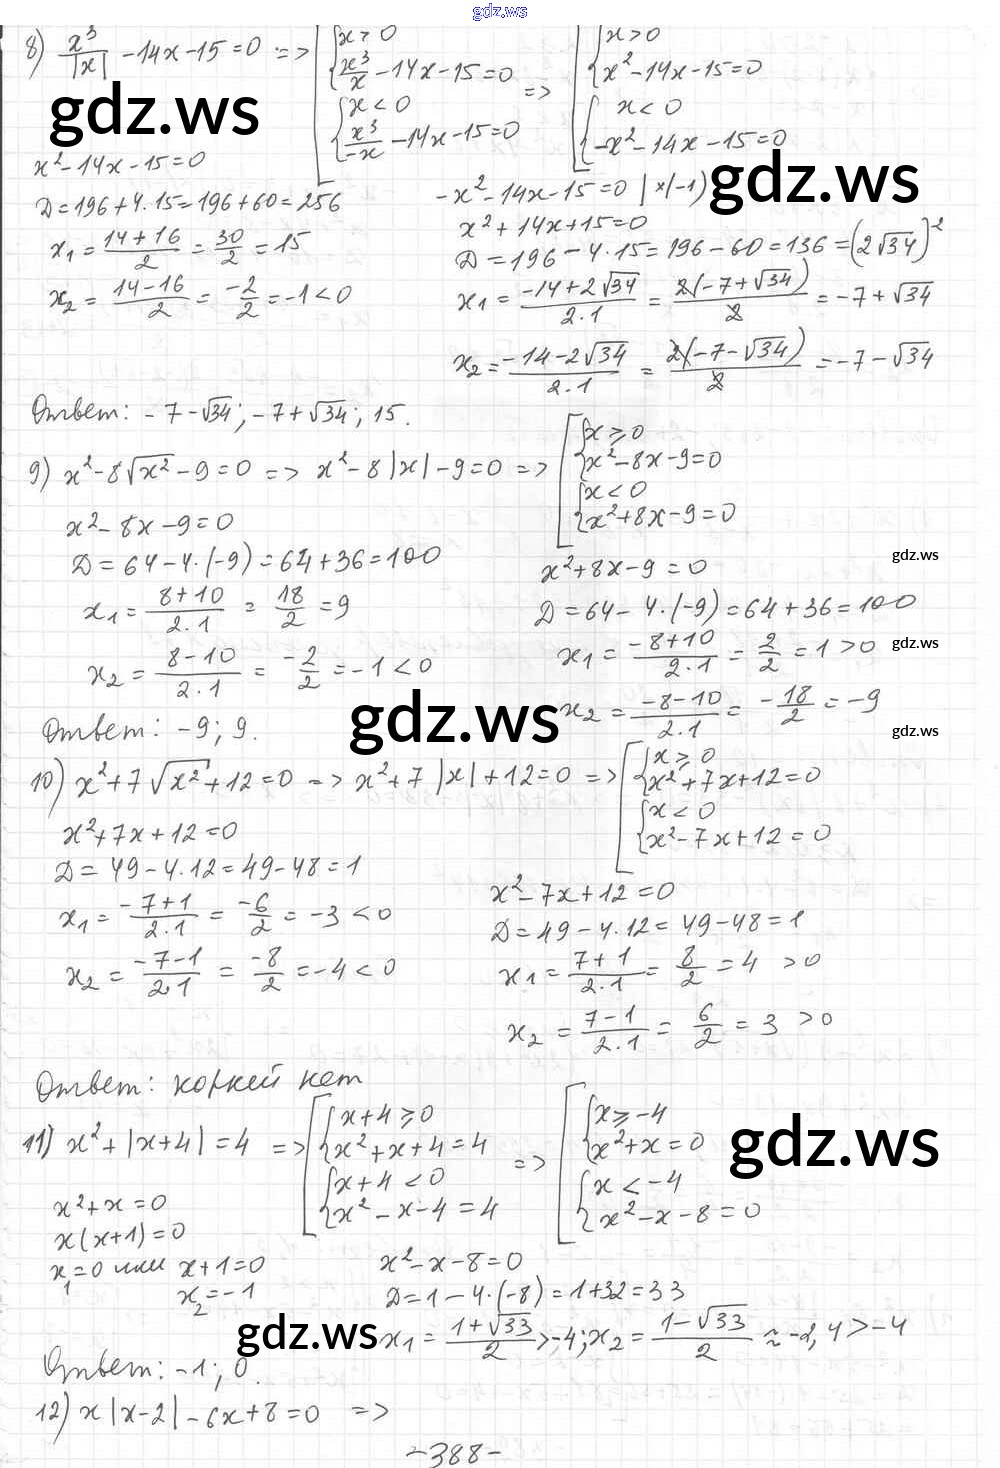 gdz.ws
8) x³/|x| - 14x - 15 = 0 => [ { x > 0 ; x³/x - 14x - 15 = 0 ; { x < 0 ; x³/-x - 14x - 15 = 0 => [ { x > 0 ; x² - 14x - 15 = 0 ; { x < 0 ; -x² - 14x - 15 = 0
gdz.ws
gdz.ws
x² - 14x - 15 = 0
D = 196 + 4·15 = 196 + 60 = 256
x₁ = (14+16)/2 = 30/2 = 15
x₂ = (14-16)/2 = -2/2 = -1 < 0
-x² - 14x - 15 = 0 | ×(-1)
x² + 14x + 15 = 0
D = 196 - 4·15 = 196 - 60 = 136 = (2√34)²
x₁ = (-14+2√34)/(2·1) = 2(-7+√34)/2 = -7+√34
x₂ = (-14-2√34)/(2·1) = 2(-7-√34)/2 = -7-√34
Ответ: -7-√34; -7+√34; 15.
9) x² - 8√x² - 9 = 0 => x² - 8|x| - 9 = 0 => [ { x ⩾ 0 ; x² - 8x - 9 = 0 ; { x < 0 ; x² + 8x - 9 = 0
x² - 8x - 9 = 0
D = 64 - 4·(-9) = 64 + 36 = 100
x₁ = (8+10)/(2·1) = 18/2 = 9
x₂ = (8-10)/(2·1) = -2/2 = -1 < 0
gdz.ws
x² + 8x - 9 = 0
D = 64 - 4·(-9) = 64 + 36 = 100
x₁ = (-8+10)/(2·1) = 2/2 = 1 > 0
gdz.ws
x₂ = (-8-10)/(2·1) = -18/2 = -9
gdz.ws
gdz.ws
Ответ: -9; 9.
10) x² + 7√x² + 12 = 0 => x² + 7|x| + 12 = 0 => [ { x ⩾ 0 ; x² + 7x + 12 = 0 ; { x < 0 ; x² - 7x + 12 = 0
x² + 7x + 12 = 0
D = 49 - 4·12 = 49 - 48 = 1
x₁ = (-7+1)/(2·1) = -6/2 = -3 < 0
x₂ = (-7-1)/(2·1) = -8/2 = -4 < 0
x² - 7x + 12 = 0
D = 49 - 4·12 = 49 - 48 = 1
x₁ = (7+1)/(2·1) = 8/2 = 4 > 0
x₂ = (7-1)/(2·1) = 6/2 = 3 > 0
Ответ: корней нет
11) x² + |x+4| = 4 => [ { x+4 ⩾ 0 ; x² + x + 4 = 4 ; { x+4 < 0 ; x² - x - 4 = 4 => [ { x ⩾ -4 ; x² + x = 0 ; { x < -4 ; x² - x - 8 = 0
gdz.ws
x² + x = 0
x(x+1) = 0
x₁ = 0 или x+1 = 0
x₂ = -1
x² - x - 8 = 0
D = 1 - 4·(-8) = 1+32 = 33
gdz.ws
x₁ = (1+√33)/2 > -4; x₂ = (1-√33)/2 ≈ -2,4 > -4
Ответ: -1; 0.
12) x|x-2| - 6x + 8 = 0 =>
-388-